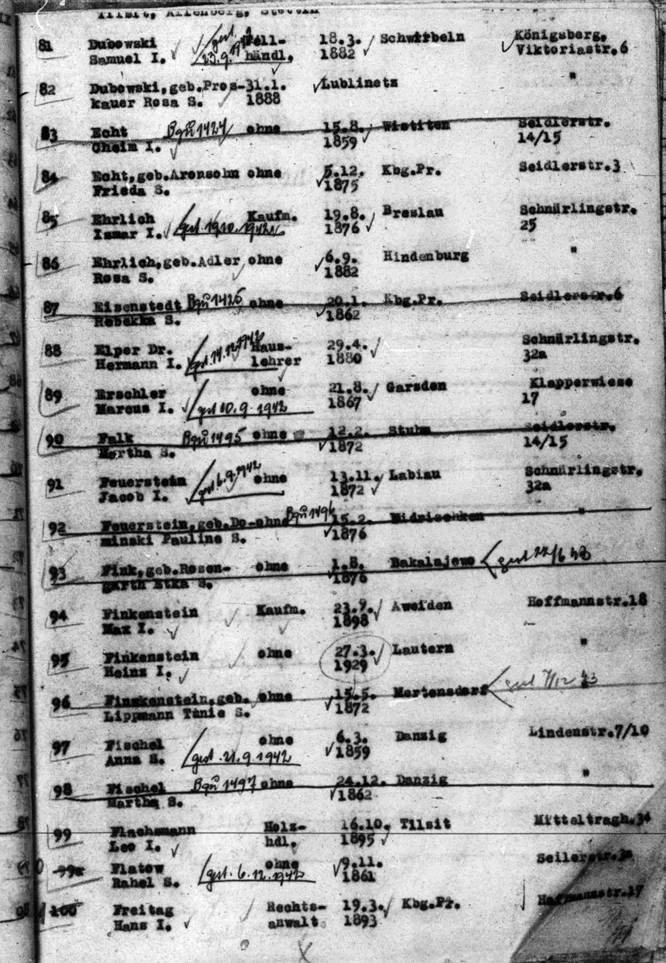 Tilsit, Allenberg, Stettin
81 Dubowski gest. Fell- 18.3. Schwirbeln Königsberg,
Samuel I. 23.9.1942 händl. 1882 Viktoriastr.6
82 Dubowski,geb.Pros- 31.1. Lublinetz "
kauer Rosa S. 1888
83 Echt Bgü 1424 ohne 15.8. Wistiten Seidlerstr.
Cheim I. 1859 14/15
84 Echt,geb.Aronsohn ohne 5.12. Kbg.Pr. Seidlerstr.3
Frieda S. 1875
85 Ehrlich Kaufm. 19.8. Breslau Schnürlingstr.
Ismar I. gest. 19.10.1942 1876 25
86 Ehrlich,geb.Adler ohne 6.9. Hindenburg "
Rosa S. 1882
87 Eisenstedt Bgü 1425 ohne 20.1. Kbg.Pr. Seidlerstr.6
Rebekka S. 1862
88 Elper Dr. Haus- 29.4. Schnürlingstr.
Hermann I. gest. 1942 lehrer 1880 32a
89 Erschler ohne 21.8. Garsden Klapperwiese
Marcus I. gest 10.9.1942 1867 17
90 Falk Bgü 1495 ohne 12.2. Stuhm Seidlerstr.
Martha S. 1872 14/15
91 Feuerstein ohne 13.11. Labiau Schnürlingstr.
Jacob I. gest 6.9.1942 1872 32a
92 Feuerstein,geb.Do- ohne Bgü 1496 15.2. "
minski Pauline S. 1876
93 Fink,geb.Rosen- ohne 1.8. Bakalajewo gest 22/6 43
garth Etka S. 1876
94 Finkenstein Kaufm. 23.9. Aweiden Hoffmannstr.18
Max I. 1898
95 Finkenstein ohne 27.3. Lautern "
Heinz I. 1929
96 Finkenstein,geb. ohne 15.5. Mertensdorf gest 7/12 43
Lippmann Tanie S. 1872
97 Fischel ohne 6.3. Danzig Lindenstr.7/10
Anna S. gest. 21.9.1942 1859
98 Fischel Bgü 1497 ohne 24.12. Danzig "
Martha S. 1862
99 Flachsmann Holz- 16.10. Tilsit Mitteltragh.34
Leo I. hdl. 1895
99a Flatow ohne 9.11. Seilerstr.
Rahel S. gest. 6.12.1942 1861
100 Freitag Rechts- 19.3. Kbg.Pr. Hoffmannstr.17
Hans I. anwalt 1893